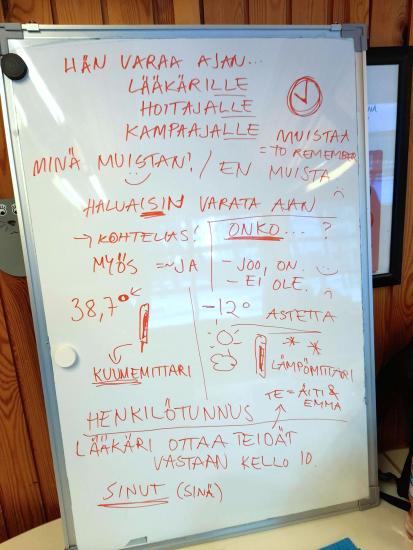 HÄN VARAA AJAN...
LÄÄKÄRILLE
HOITAJALLE
KAMPAAJALLE
MUISTAA
= TO REMEMBER
MINÄ MUISTAN! / EN MUISTA
HALUAISIN VARATA AJAN
→ KOHTELIAS!
ONKO...?
MYÖS = JA
- JOO, ON.
- EI OLE.
38,7°
-12° ASTETTA
KUUMEMITTARI
LÄMPÖMITTARI
TE = ÄITI &
EMMA
HENKILÖTUNNUS
LÄÄKÄRI OTTAA TEIDÄT
VASTAAN KELLO 10.
SINUT (SINÄ)